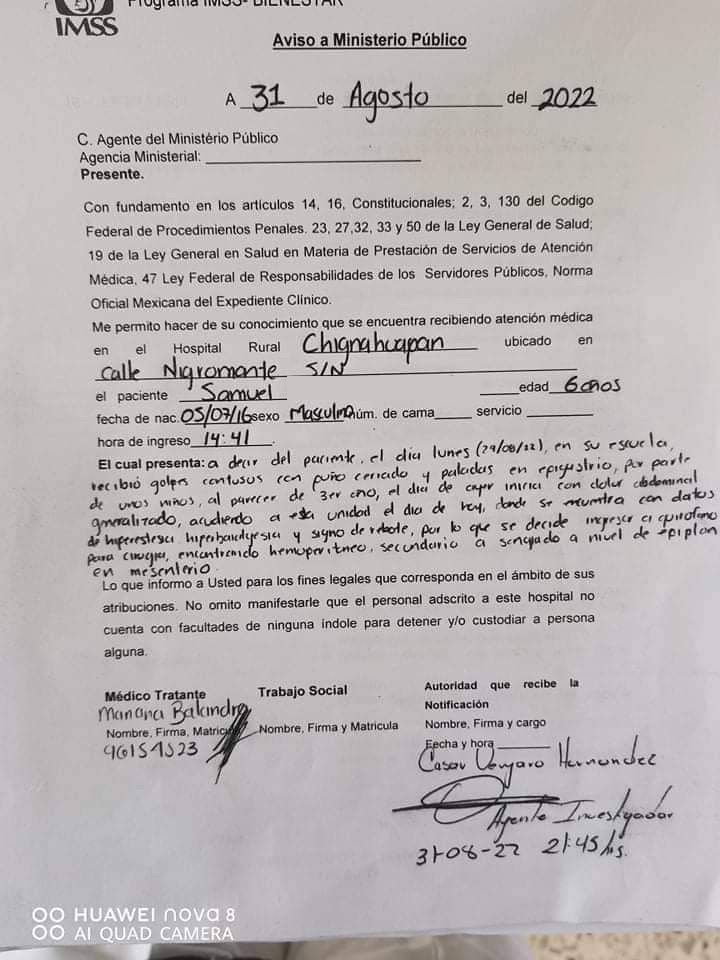 Programa IMSS- BIENESTAR
IMSS
Aviso a Ministerio Público
A 31 de Agosto del 2022
C. Agente del Ministério Público
Agencia Ministerial:
Presente.
Con fundamento en los artículos 14, 16, Constitucionales; 2, 3, 130 del Codigo
Federal de Procedimientos Penales. 23, 27,32, 33 y 50 de la Ley General de Salud;
19 de la Ley General en Salud en Materia de Prestación de Servicios de Atención
Médica, 47 Ley Federal de Responsabilidades de los Servidores Públicos, Norma
Oficial Mexicana del Expediente Clínico.
Me permito hacer de su conocimiento que se encuentra recibiendo atención médica
en el Hospital Rural Chignahuapan ubicado en
calle Nigromante S/N
el paciente Samuel edad 6 años
fecha de nac. 05/07/16 sexo Masculino núm. de cama servicio
hora de ingreso 14:41.
El cual presenta: a decir del paciente, el día lunes (29/08/22), en su escuela,
recibió golpes contusos con puño cerrado y patadas en epigastrio, por parte
de unos niños, al parecer de 3er año, el día de ayer inicia con dolor abdominal
generalizado, acudiendo a esta unidad el día de hoy, donde se muestra con datos
de hiperestesia, hiperbaralgesia y signo de rebote, por lo que se decide ingresar a quirofano
para cirugia, encontrando hemoperitneo, secundario a sangrado a nivel de epiplon
en mesenterio.
Lo que informo a Usted para los fines legales que corresponda en el ámbito de sus
atribuciones. No omito manifestarle que el personal adscrito a este hospital no
cuenta con facultades de ninguna índole para detener y/o custodiar a persona
alguna.
Médico Tratante
Mariana Balandra
Nombre, Firma, Matricula
Trabajo Social
Nombre, Firma y Matricula
Autoridad que recibe la
Notificación
Nombre, Firma y cargo
Fecha y hora
Hernandez
Agente Investigador
31-08-22 21:45 hs.
HUAWEI nova 8
AI QUAD CAMERA